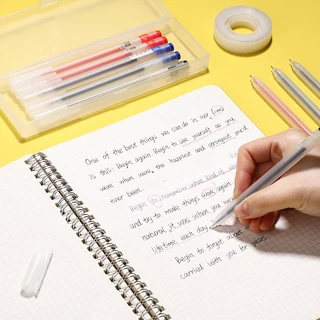 One of the best things we can do in our lives
is this: Begin again. Begin to see yourself as you
were when were the happiest and strongest you'd
ever been.
Begin to remember what kind of
and try to make things work again
natural. it was when you were
lifetime each day.
Begin to forget about
carried with you for years.